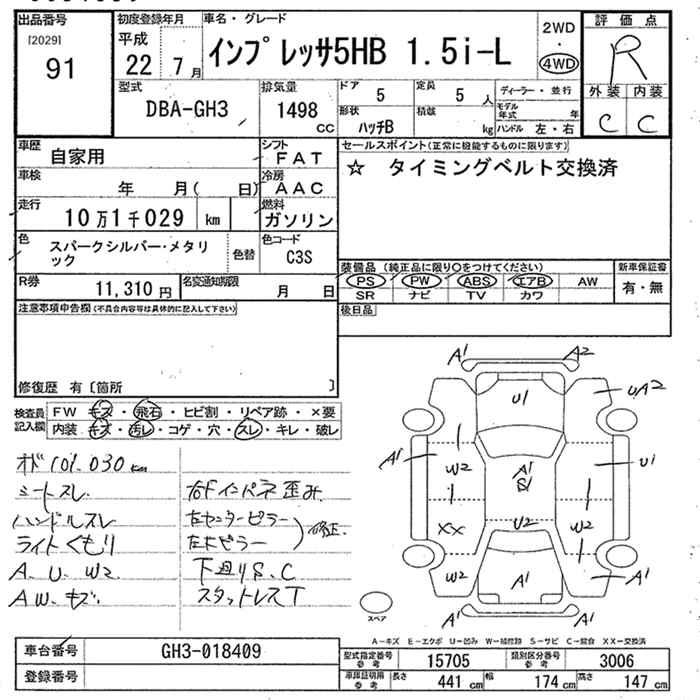 出品番号
[2029]
91
初度登録年月
平成
22 7月
車名・グレード
インプレッサ5HB 1.5i-L
2WD
・
4WD
評価点
R
外装 内装
C C
型式
DBA-GH3
排気量
1498
CC
ドア 5
定員 5 人
形状 ハッチB
積載 kg
ディーラー・並行
モデル年式 年
ハンドル 左・右
車歴 自家用
シフト FAT
車検 年 月( 日)
冷房 AAC
走行 10万1千029 km
燃料 ガソリン
色 スパークシルバー・メタリック
色替
色コード C3S
R券 11,310円
名変通知期限 月 日
セールスポイント(正常に機能するものに限ります)
☆ タイミングベルト交換済
装備品(純正品に限り○をつけてください)
PS PW ABS エアB AW
SR ナビ TV カワ
新車保証書
有・無
後日品
注意事項申告欄(不具合内容等は具体的に記入して下さい)
修復歴 有〔箇所 〕
検査員記入欄
FW キズ・飛石・ヒビ割・リペア跡・×要
内装 キズ・汚レ・コゲ・穴・スレ・キレ・破レ
オド 101,030 km
シートスレ
ハンドルスレ
ライトくもり
A、U、W2
AW、キズ
右Fインパネ歪み
左センターピラー
左Fピラー
修正
下廻りS、C
スタットレスT
A1 A2
U1
UA2
A1
W2
A1
S1
U1
XX
U2
W2
W2
A1
A1
A1 A1
スペア
A-キズ E-エクボ U-凹み W-補修跡 S-サビ C-腐食 XX-交換済
車台番号 GH3-018409
登録番号
型式指定番号 参考 15705
類別区分番号 参考 3006
車庫証明用 参考 長さ 441 cm 幅 174 cm 高さ 147 cm